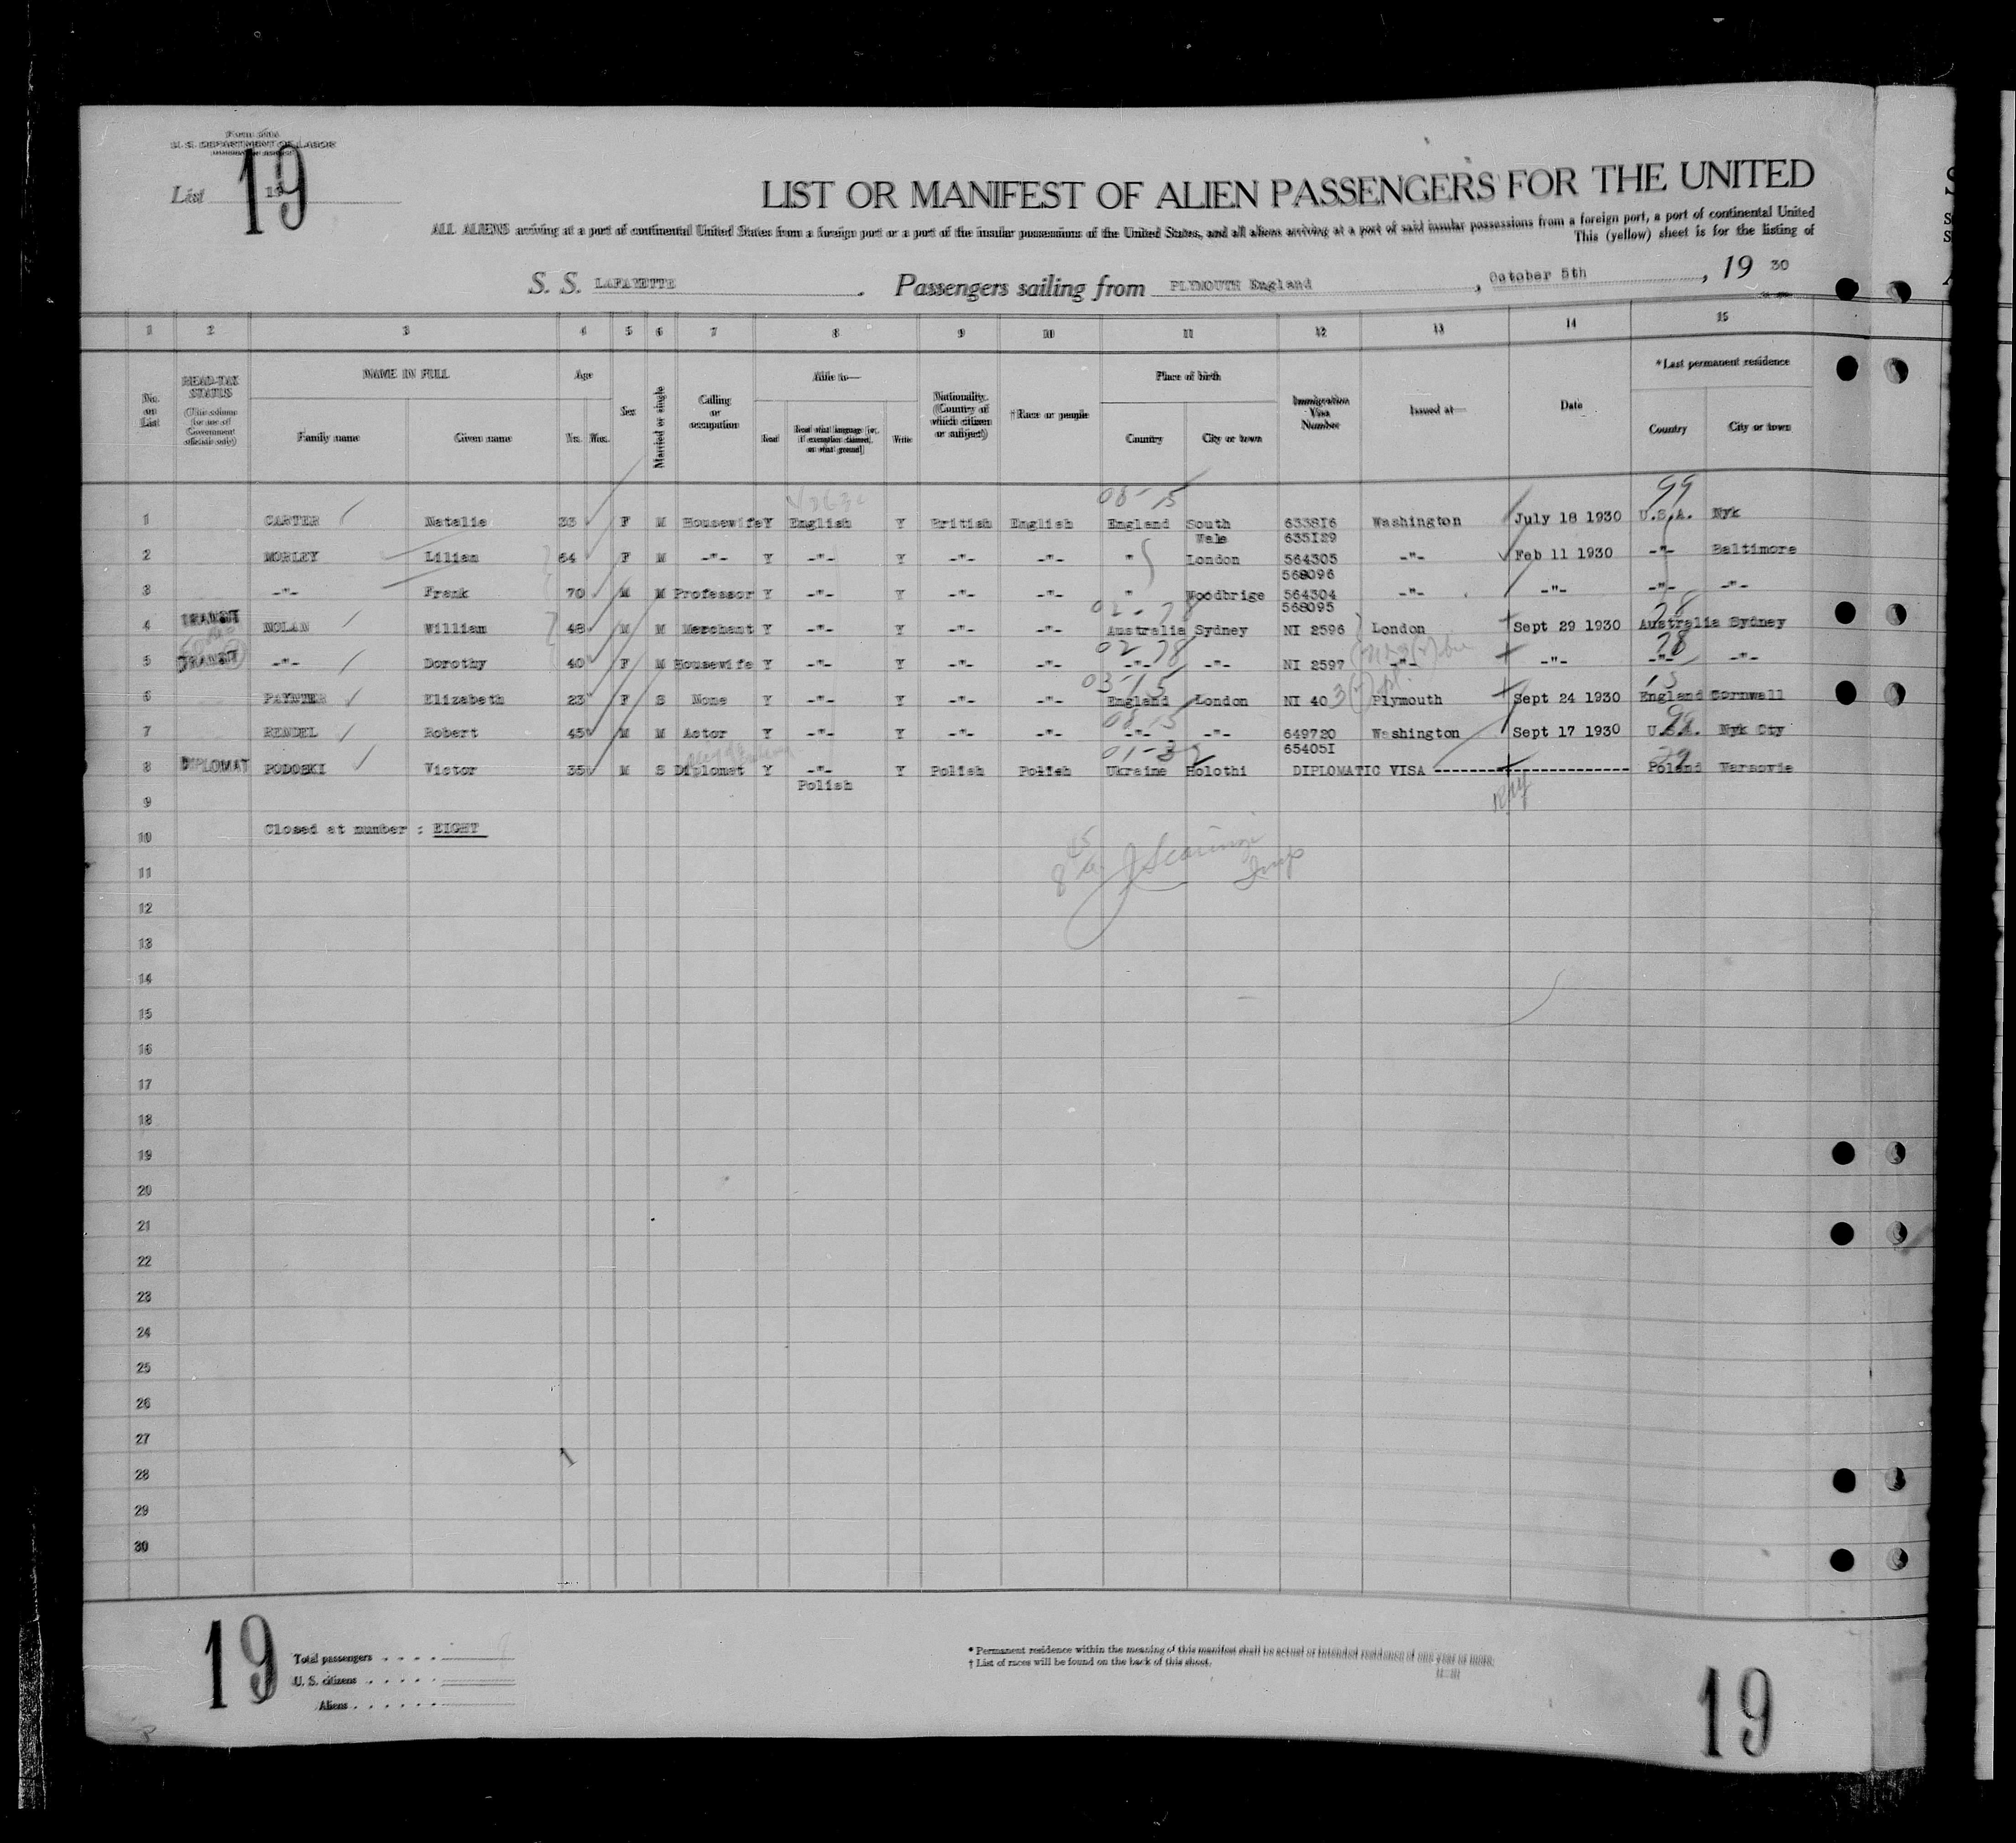 Form 500A
U. S. DEPARTMENT OF LABOR
List 19
LIST OR MANIFEST OF ALIEN PASSENGERS FOR THE UNITED
ALL ALIENS arriving at a port of continental United States from a foreign port or a port of the insular possessions of the United States, and all aliens arriving at a port of said insular possessions from a foreign port, a port of continental United
This (yellow) sheet is for the listing of
S. S. LAFAYETTE . Passengers sailing from PLYMOUTH England , October 5th , 19 30
1 2 3 4 5 6 7 8 9 10 11 12 13 14 15
No. on List
HEAD-TAX STATUS (This column for use of Government officials only)
NAME IN FULL
Family name Given name
Age
Yrs. Mos.
Sex
Married or single
Calling or occupation
Able to—
Read Read what language [or, if exemption claimed, on what ground] Write
Nationality. (Country of which citizen or subject)
† Race or people
Place of birth
Country City or town
Immigration Visa Number
Issued at—
Date
* Last permanent residence
Country City or town
08-15 99
1 CARTER Natalie 33 F M Housewife Y English Y British English England South Wale 633816 635129 Washington July 18 1930 U.S.A. Nyk
2 MORLEY Lilian 64 F M -"- Y -"- Y -"- -"- " London 564305 568096 -"- Feb 11 1930 -"- Baltimore
3 -"- Frank 70 M M Professor Y -"- Y -"- -"- " Woodbrige 564304 568095 -"- -"- -"- -"-
02-78 78
4 TRANSIT NOLAN William 48 M M Merchant Y -"- Y -"- -"- Australia Sydney NI 2596 London Sept 29 1930 Australia Sydney
02 78 78
5 TRANSIT -"- Dorothy 40 F M Housewife Y -"- Y -"- -"- -"- -"- NI 2597 -"- -"- -"- -"-
03-15 15
6 PAYNTER Elizabeth 23 F S None Y -"- Y -"- -"- England London NI 40 3(2) pl. Plymouth Sept 24 1930 England Cornwall
08 15 99
7 RENDEL Robert 45 M M Actor Y -"- Y -"- -"- -"- -"- 649720 65405I Washington Sept 17 1930 U.S.A. Nyk Cty
8 DIPLOMAT PODOSKI Victor 35 M S Diplomat Y -"- Polish Y Polish Polish Ukraine Holothi DIPLOMATIC VISA -------------------- Poland Varsovie
9
10 Closed at number : EIGHT
11
12
13
14
15
16
17
18
19
20
21
22
23
24
25
26
27
28
29
30
19
Total passengers
U. S. citizens
Aliens
* Permanent residence within the meaning of this manifest shall be actual or intended residence of one year or more.
† List of races will be found on the back of this sheet.
19